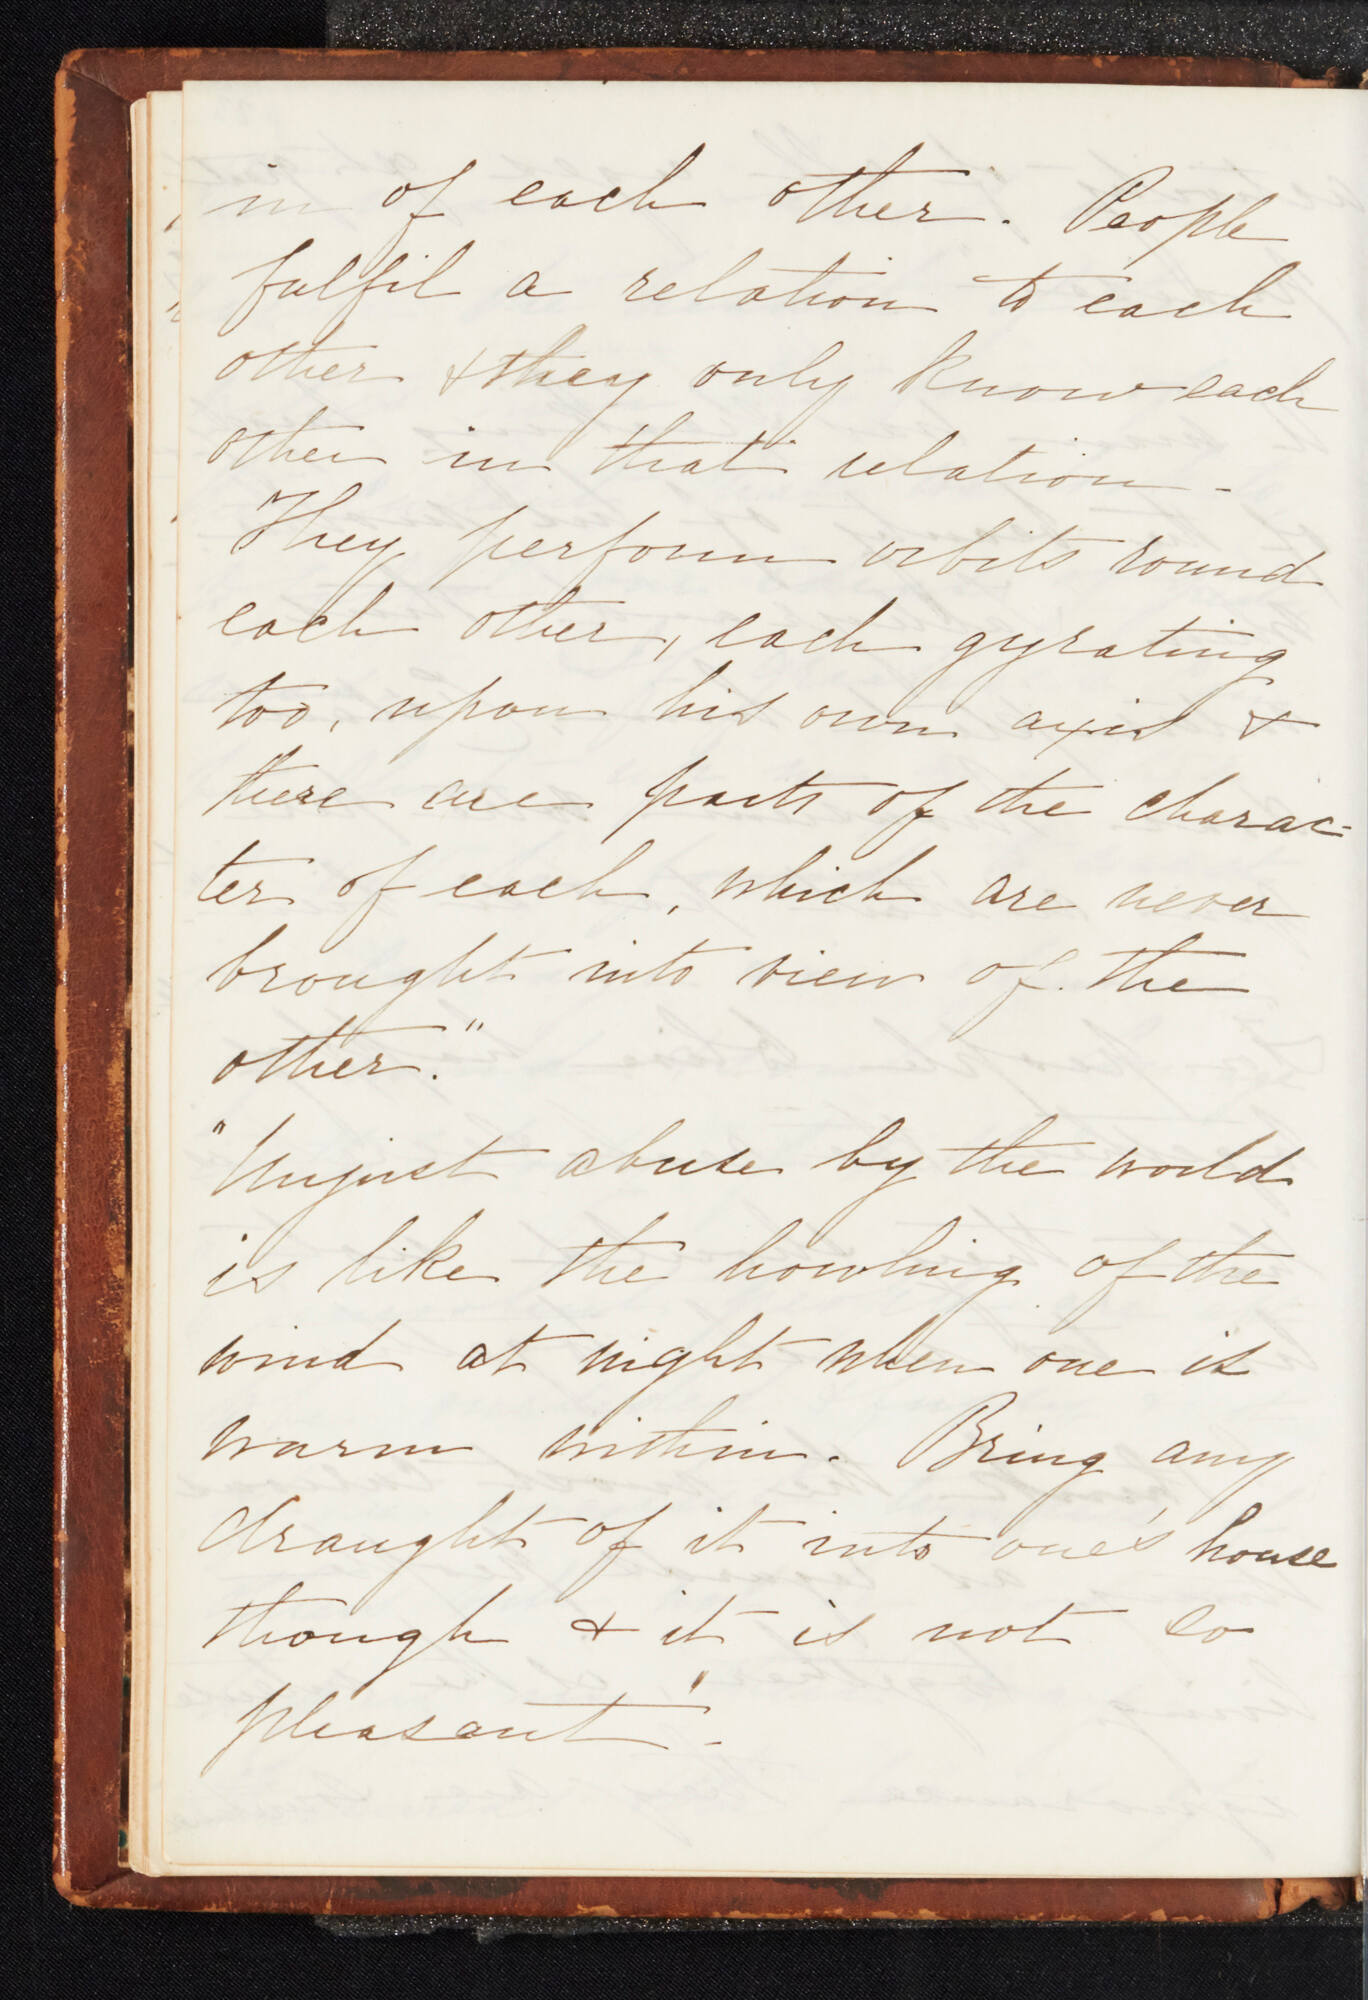 in of each other. People
fulfil a relation to each
other & they only know each
other in that relation -
They perform orbits round
each other, each gyrating
too, upon his own axis &
there are parts of the charac-
ter of each, which are never
brought into view of the
other."
"Unjust abuse by the world
is like the howling of the
wind at night when one is
warm within. Bring any
draught of it into one's house
though & it is not so
pleasant" -